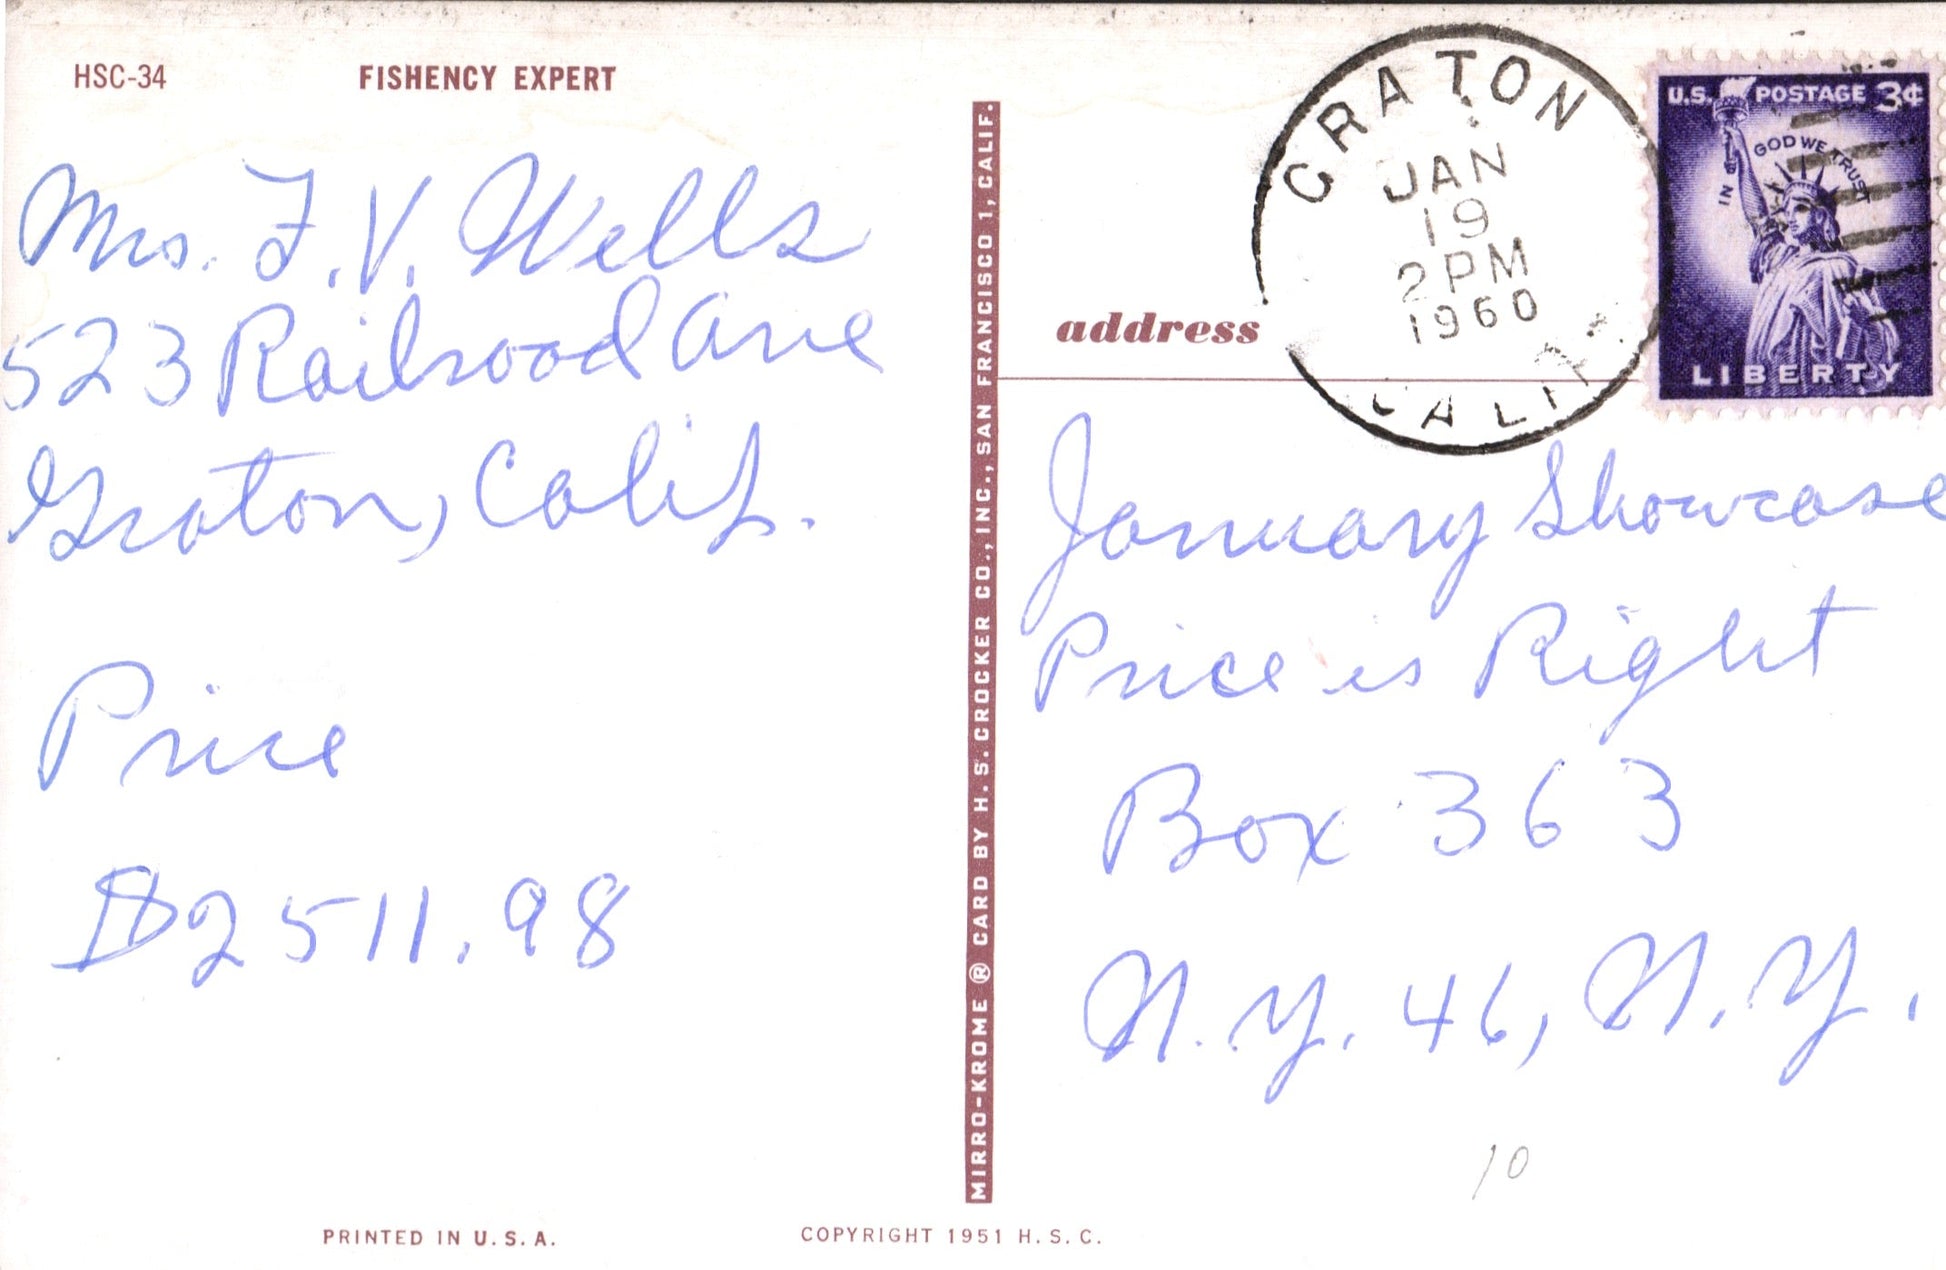 HSC-34
FISHENCY EXPERT
Mrs. F. V. Wells
523 Railroad Ave
Graton, Calif.
Price
$2511.98
PRINTED IN U.S.A.
COPYRIGHT 1951 H.S.C.
MIRRO-KROME ® CARD BY H.S. CROCKER CO., INC., SAN FRANCISCO 1, CALIF.
address
GRATON
JAN
19
2 PM
1960
CALIF.
U.S. POSTAGE 3¢
IN GOD WE TRUST
LIBERTY
January Showcase
Price is Right
Box 363
N.Y. 46, N.Y.
10